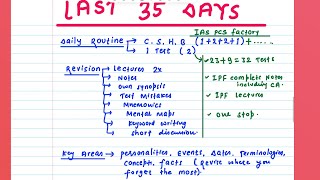 LAST 35 DAYS
IAS PCS factory
Daily Routine → C. S. H. B (1+2+2+1) + ....
1 Test (2)
→ 23+9 = 32 Tests
Revision → Lectures 2x
→ Notes
→ Own synopsis
→ Test mistakes
→ Mnemonics
→ Mental maps
→ Keyword writing
→ short discussion
IPF complete Notes
including CA.
IPF Lectures
one stop.
Key Areas → personalities, Events, Dates, Terminologies,
concept, facts (Revise where you
forget the most)